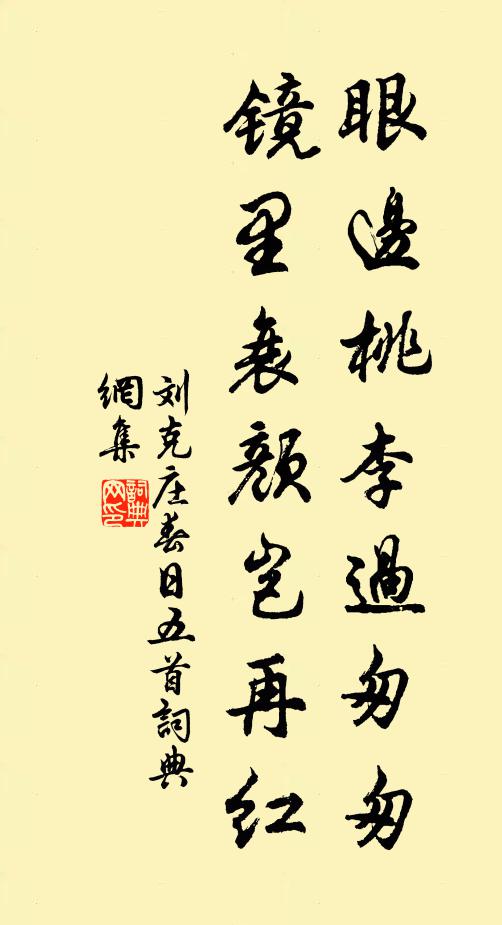 眼邊桃李過匆匆
镜里衰颜岂再红
刘克庄春日五首詞典
網集
詞典
网印